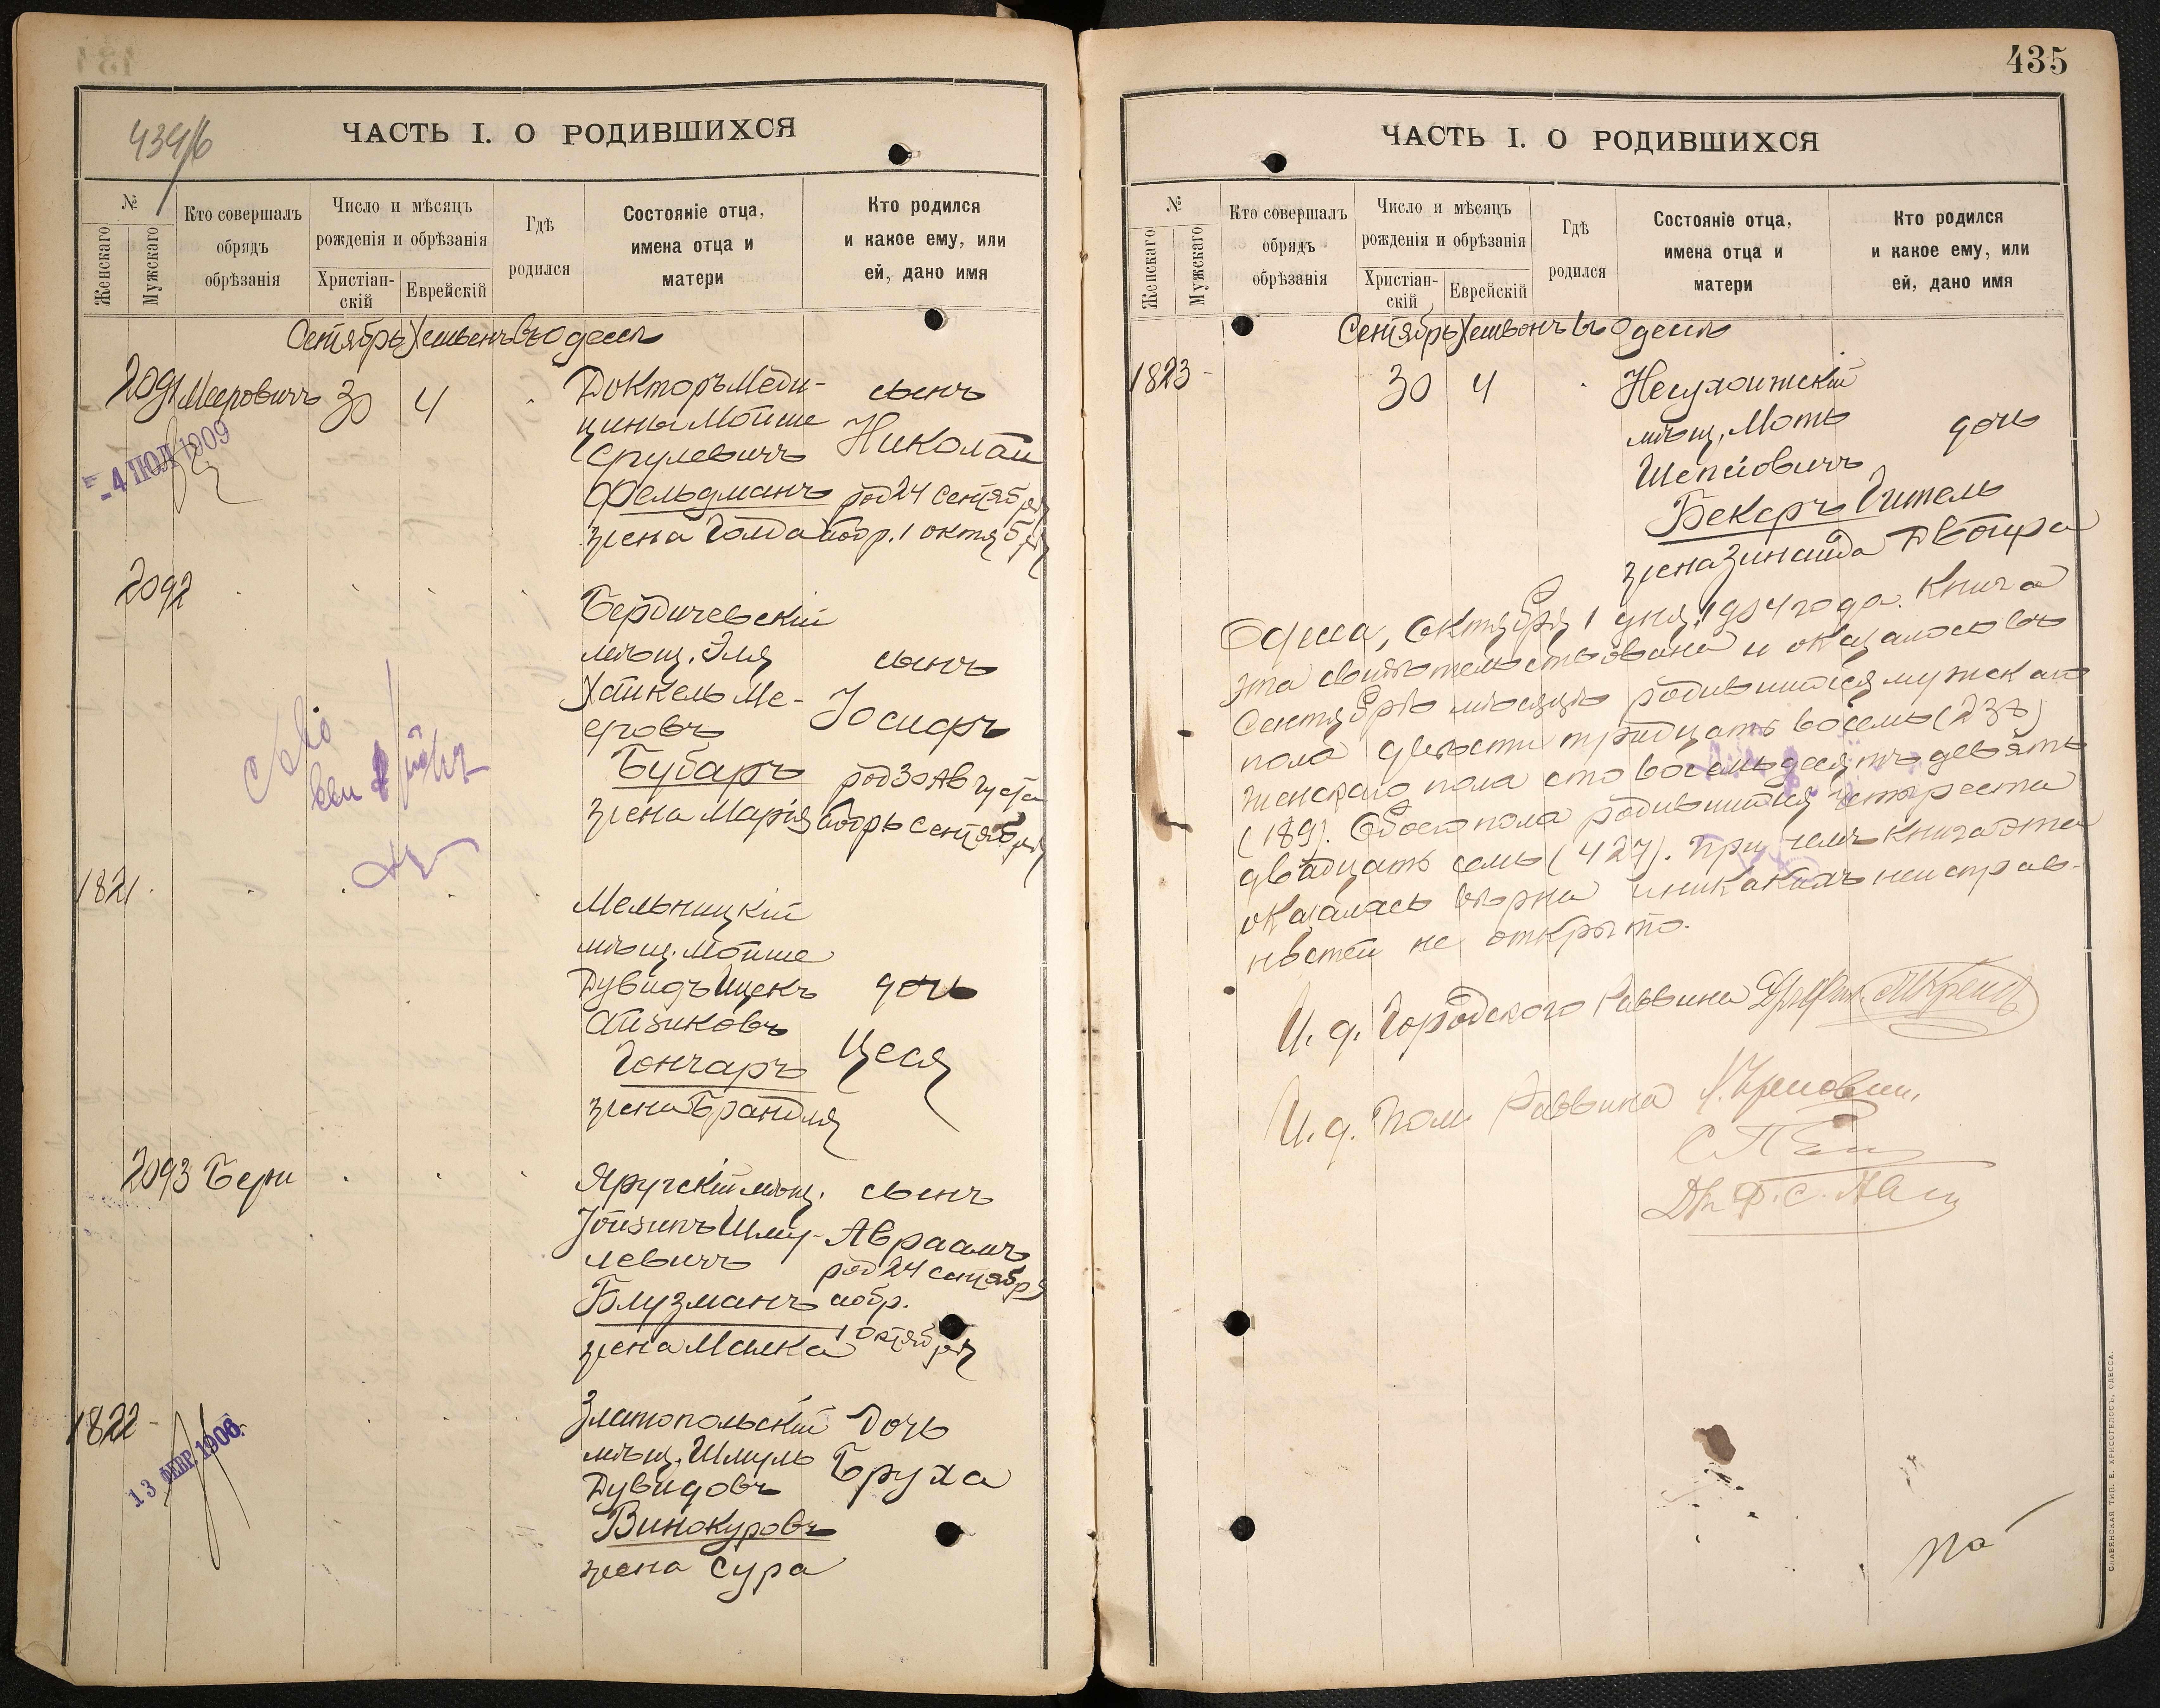 434/б
ЧАСТЬ I. О РОДИВШИХСЯ
№
Женскаго
Мужскаго
Кто совершалъ
обрядъ
обрѣзанія
Число и мѣсяцъ
рожденія и обрѣзанія
Христіан-
скій
Еврейскій
Гдѣ
родился
Состояніе отца,
имена отца и
матери
Кто родился
и какое ему, или
ей, дано имя
Сентябрь Хешвонъ въ Одессѣ
2091 Мееровичъ 30 4
Докторъ Меди-
цины Мойше
Срулевичъ
Фельдманъ
жена Голда
сынъ
Николай
род 24 Сентября
обр. 1 октября
- 4 ІЮЛ 1909
2092
Бердичевскій
мѣщ. Эля
Хаикель Ме-
еровъ
Бубаръ
жена Марія
сынъ
Іосифъ
род 30 Августа
обрѣ Сентября
1821
Мельницкій
мѣщ. Мойше
Дувидъ Ицекъ
Айзиковъ
Гончаръ
жена Брандля
дочь
Цеся
2093 Бери
Яругскій мѣщ.
Іойзипъ Шму-
левичъ
Блузманъ
жена Малка
сынъ
Авраамъ
род 24 сентября
обр.
1 октября
1822
13 ФЕВР. 1906
Златопольскій
мѣщ. Шмуль
Дувидовъ
Винокуровъ
жена Сура
Дочь
Бруха
435
ЧАСТЬ I. О РОДИВШИХСЯ
№
Женскаго
Мужскаго
Кто совершалъ
обрядъ
обрѣзанія
Число и мѣсяцъ
рожденія и обрѣзанія
Христіан-
скій
Еврейскій
Гдѣ
родился
Состояніе отца,
имена отца и
матери
Кто родился
и какое ему, или
ей, дано имя
Сентябрь Хешвонъ въ Одессѣ
1823 30 4
Несухоижскій
мѣщ. Моть
Шепсіовичъ
Бекеръ
жена Зинаида
дочь
Гитель
Двойра
Одесса, Октября 1 дня 1904 года. Книга
эта свидѣтельствована и оказалось въ
Сентябрѣ мѣсяцѣ родившихся мужскаго
пола двѣсти тридцать восемь (238)
женскаго пола сто восемьдесятъ девять
(189). Обоего пола родившихся четыреста
двадцать семь (427). При чемъ книга эта
оказалась вѣрна и никакихъ неисправ-
ностей не открыто.
И. д. Городского Раввина
И. д. Пом. Раввина
СЛАВЯНСКАЯ ТИП. Е. ХРИСОГЕЛОСЪ, ОДЕССА.